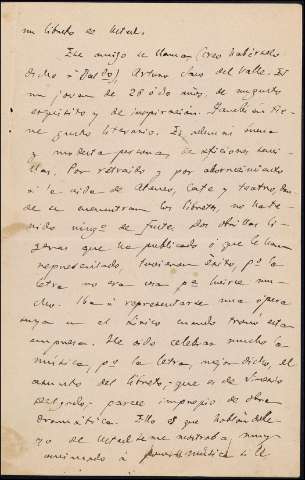 un libreto es Usted.
Este amigo se llama (creo habérselo
dicho á Dardo) Arturo Saco del Valle. Es
un joven de 28 ó 30 años, de
esquisito y de inspiración. También tie-
ne gusto literario. Es además sana
y modesta persona, de aficiones senci-
llas. Por retraido y por aborrecimiento
á la vida de Ateneo, Café y teatro, don-
de se encuentran los libretos, no ha te-
nido ningº de fuste. Dos obrillas li-
geras que ha publicado ó que le han
representado, tuvieron éxito, pº la
letra no era cosa pª lucirse mu-
cho. Iba á representarse una ópera
suya en el Lírico cuando tronó esta
empresa. He oido celebrar mucho la
música, pº la letra, mejor dicho, el
asunto del libreto, que es de Sinesio
Delgado, parece impropio de obra
dramática. Ello es que hablándole
yo de Usted se me mostraba muy
animado á música si le